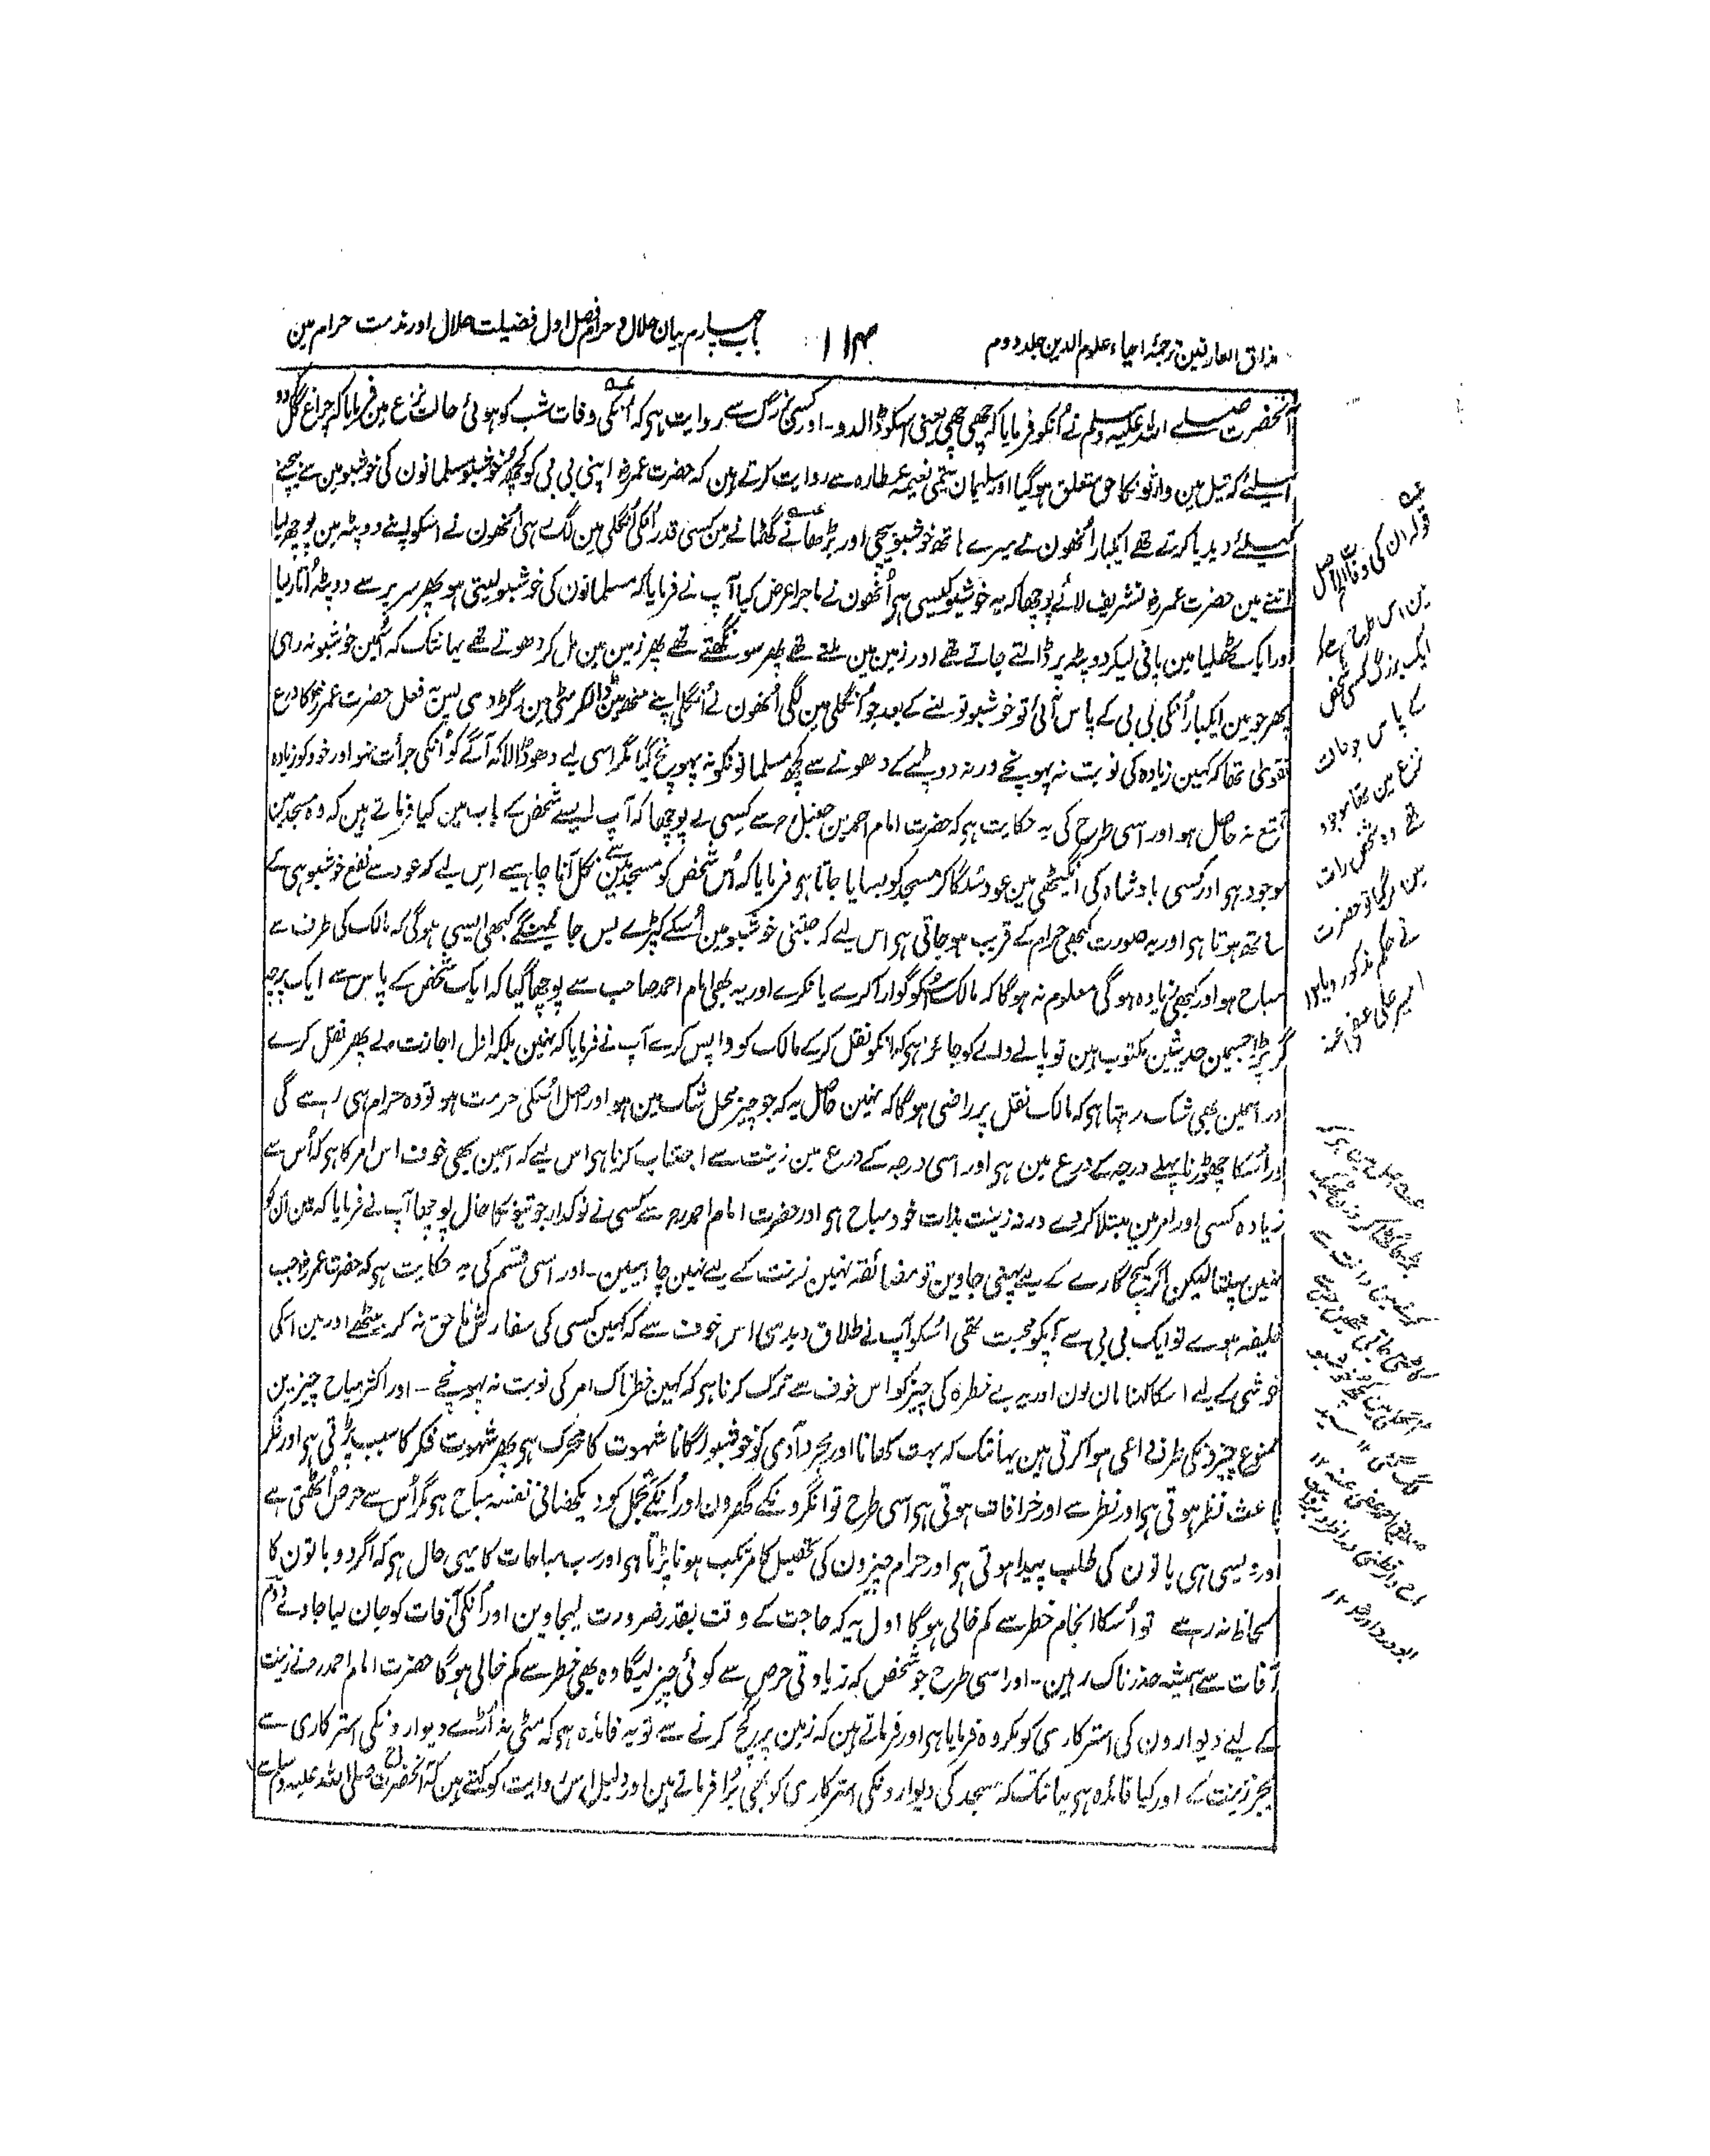 مذاق العارفین ترجمۂ احیاء علوم الدین جلد دوم
۱۱۴
باب چہارم بیان حلال و حرام فصل اول فضیلت حلال اور مذمت حرام مین
آنحضرت صلے اللہ علیہ وسلم نے اُنکو فرمایا کہ چھی چھی یعنی اسکو ڈالدو۔ اور کسی بزرگ سے روایت ہی کہ اُنکی وفات شب کو ہوئی حالت نزع مین فرمایا کہ چراغ گل کردو
اسلیے کہ تیل مین وارثونکا حق متعلق ہوگیا اور سلیمان تیمی نعیمہ عطارہ سے روایت کرتے ہین کہ حضرت عمر رضہ اپنی بی بی کو کچھ خوشبو مسلمانون کی خوشبو مین سے بیچنے
کیلیے دیدیا کرتے تھے ایکبار اُنھون نے میرے ہاتھ خوشبو بیچی اور بڑھانے گھٹانے مین کسی قدر اُنکی اُنگلی مین لگ رہی اُنھون نے اسکو اپنے دوپٹہ مین پوچھ لیا
اتنے مین حضرت عمر رضہ تشریف لائے پوچھا کہ یہ خوشبو کیسی ہی اُنھون نے ماجرا عرض کیا آپ نے فرمایا کہ مسلمانون کی خوشبو لیتی ہو پھر سر پر سے دوپٹہ اُتار لیا
اور ایک ٹھلیا مین پانی لیکر دوپٹہ پر ڈالتے جاتے تھے اور زمین مین ملتے تھے پھر سونگھتے تھے پھر زمین مین مل کر دھوتے تھے یہانتک کہ اُسمین خوشبو نہ رہی
پھر جو مین ایکبار اُنکی بی بی کے پاس آئی تو خوشبو تولنے کے بعد جو اُنگلی مین لگی اُنھون نے اُنگلی اپنے منھ مین ڈالکر مٹی مین رگڑ دی پس یہ فعل حضرت عمر رضہ کا ورع
تقوی تھا کہ کہین زیادہ کی نوبت نہ پہونچے ورنہ دوپٹے کے دھونے سے کچھ مسلمانونکو نہ پہونچ گیا مگر اسی لیے دھو ڈالا کہ آگے کو اُنکی جرأت نہو اور خود کو زیادہ
تمتع نہ حاصل ہو اور اسی طرح کی یہ حکایت ہی کہ حضرت امام احمد بن حنبل رح سے کسی نے پوچھا کہ آپ ایسے شخص کے باب مین کیا فرماتے ہین کہ وہ مسجد مین
موجود ہی اور کسی بادشاہ کی انگیٹھی مین عود سُلگا کر مسجد کو بسایا جاتا ہو فرمایا کہ اُس شخص کو مسجد مین سے نکل آنا چاہیے اس لیے کہ عود سے نفع خوشبو ہی کے
ساتھ ہوتا ہی اور یہ صورت کبھی حرام کے قریب ہو جاتی ہی اس لیے کہ جتنی خوشبو مین اُسکے کپڑے بس جائینگے کبھی ایسی ہوگی کہ مالک کی طرف سے
مباح ہو اور کبھی زیادہ ہوگی معلوم نہ ہوگا کہ مالک اُسکو گوارا کرے یا نکرے اور یہ بھی امام احمد صاحب سے پوچھا گیا کہ ایک شخص کے پاس سے ایک پرچہ
گر پڑا جسمین حدیثین مکتوب ہین تو پانے والے کو جائز ہی کہ انکو نقل کرکے مالک کو واپس کرے آپ نے فرمایا کہ نہین بلکہ اول اجازت لے پھر نقل کرے
اور اسمین بھی شک رہتا ہی کہ مالک نقل پر راضی ہوگا کہ نہین حاصل یہ کہ جو چیز محل شک مین ہو اور اصل اُسکی حرمت ہو تو وہ حرام ہی رہے گی
اور اُسکا چھوڑنا پہلے درجہ کے ورع مین ہی اور اسی درجہ کے ورع مین زینت سے اجتناب کرنا ہی اس لیے کہ اسمین بھی خوف اس امر کا ہی کہ اُس سے
زیادہ کسی اور امر مین مبتلا کر دے ورنہ زینت بذات خود مباح ہی اور حضرت امام احمد رح سے کسی نے نوکدار جوتیونکا حال پوچھا آپ نے فرمایا کہ مین ان کو
نہین پہنتا لیکن اگر کیچ گارے کے لیے پہنی جاوین تو مضائقہ نہین زینت کے لیے نہین چاہیین۔ اور اسی قسم کی یہ حکایت ہی کہ حضرت عمر رضہ جب
خلیفہ ہوے تو ایک بی بی سے آپکو محبت تھی اُسکو آپ نے طلاق دیدی اس خوف سے کہ کہین کسی کی سفارش ناحق نہ کر بیٹھے اور مین اسکی
خوشی کے لیے اسکا کہنا مان لون اور یہ بے خطرہ کی چیز کو اس خوف سے ترک کرنا ہی کہ کہین خطرناک امر کی نوبت نہ پہونچے ۔ اور اکثر مباح چیزین
ممنوع چیزونکی طرف داعی ہوا کرتی ہین یہانتک کہ بہت کھانا اور مجرد آدمی کو خوشبو لگانا شہوت کا محرک ہی پھر شہوت فکر کا سبب پڑتی ہی اور فکر
باعث نظر ہوتی ہی اور نظر سے اور خرافات ہوتی ہی اسی طرح توانگرونکے گھرون اور اُنکے تجمل کو دیکھنا فی نفسہ مباح ہی مگر اُس سے حرص اُٹھتی ہے
اور ویسی ہی باتون کی طلب پیدا ہوتی ہی اور حرام چیزون کی تحصیل کا مرتکب ہونا پڑتا ہی اور سب مباحات کا یہی حال ہی کہ اگر دو باتون کا
لحاظ نہ رہے تو اُسکا انجام خطر سے کم خالی ہوگا اول یہ کہ حاجت کے وقت بقدر ضرورت لیجاوین اور اُنکی آفات کو جان لیا جاوے دوم
آفات سے ہمیشہ حذرناک رہین۔ اور اسی طرح جو شخص کہ زیادتی حرص سے کوئی چیز لیگا وہ بھی خطر سے کم خالی ہوگا حضرت امام احمد رح نے زینت
کے لیے دیوارون کی استرکاری کو مکروہ فرمایا ہی اور فرماتے ہین کہ زمین پر گچ کرنے سے تو یہ فائدہ ہی کہ مٹی نہ اُڑے دیوارونکی استرکاری سے
بجز زینت کے اور کیا فائدہ ہی یہانتک کہ مسجد کی دیوارونکی استرکاری کو بھی بُرا فرماتے ہین اور دلیل اس روایت کو کہتے ہین کہ آنحضرت صلی اللہ علیہ وسلم سے
قولہ ان کی وفات الخ اصل
مین اس طرح ہے کہ
ایک بزرگ کسی شخص
کے پاس جو حالت
نزع مین تھا موجود
تھے وہ شخص رات
مین مرگیا تو حضرت
نے حکم مذکور دیا ۱۲
امیر علی عفی عنہ